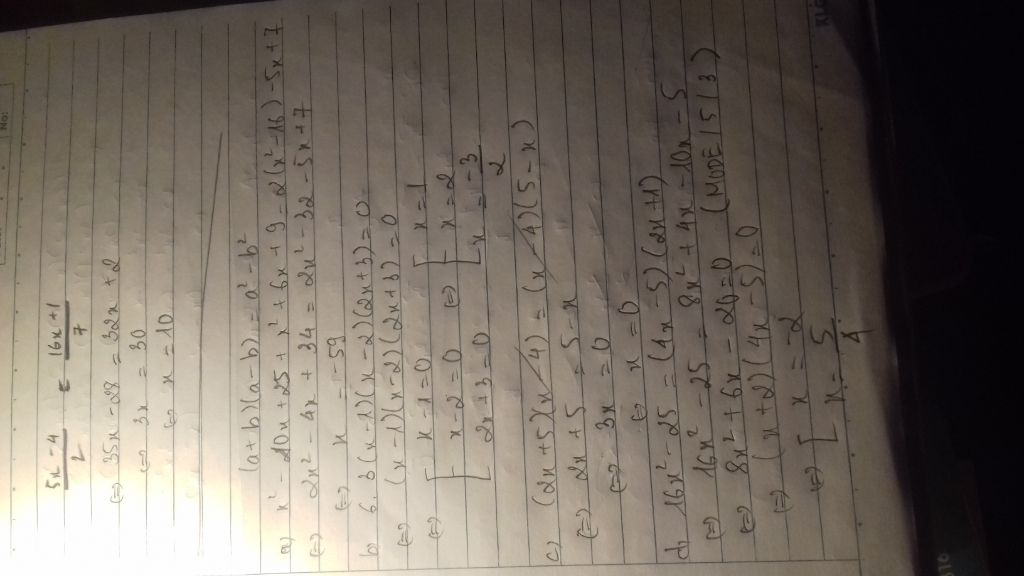 No:
5x-4 / 2 = 16x+1 / 7
(=) 35x - 28 = 32x + 2
(=) 3x = 30
(=) x = 10
(a+b)(a-b) = a² - b²
a) x² - 10x + 25 + x² + 6x + 9 = 2(x² - 16) - 5x + 7
(=) 2x² - 4x + 34 = 2x² - 32 - 5x + 7
(=) x = -59
b) 6.3(x-1)(x-2)(2x+3) = 0
(=) (x-1)(x-2)(2x+3) = 0
(=) [ x-1 = 0 (=) [ x = 1
x-2 = 0 x = 2
2x+3 = 0 x = -3/2
c) (2x+5)(x-4) = (x-4)(5-x)
(=) 2x+5 = 5-x
(=) 3x = 0
(=) x = 0
d) 16x² - 25 = (4x-5)(2x+1)
(=) 16x² - 25 = 8x² + 4x - 10x - 5
(=) 8x² + 6x - 20 = 0 (MODE/5/3)
(=) (x+2)(4x-5) = 0
(=) [ x = -2
x = 5/4